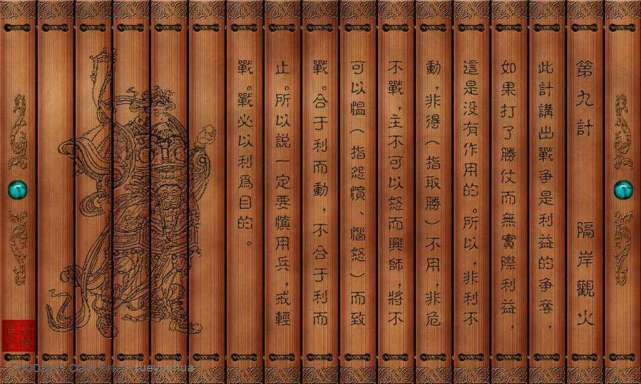 第九計 隔岸觀火
此計講出戰爭是利益的爭奪，
如果打了勝仗而無實際利益，
這是没有作用的。所以，非利不
動，非得（指取勝）不用，非危
不戰，主不可以怒而興師，將不
可以愠（指怨憤、惱怒）而致
戰。合于利而動，不合于利而
止。所以説一定要慎用兵，戒輕
戰。戰必以利爲目的。